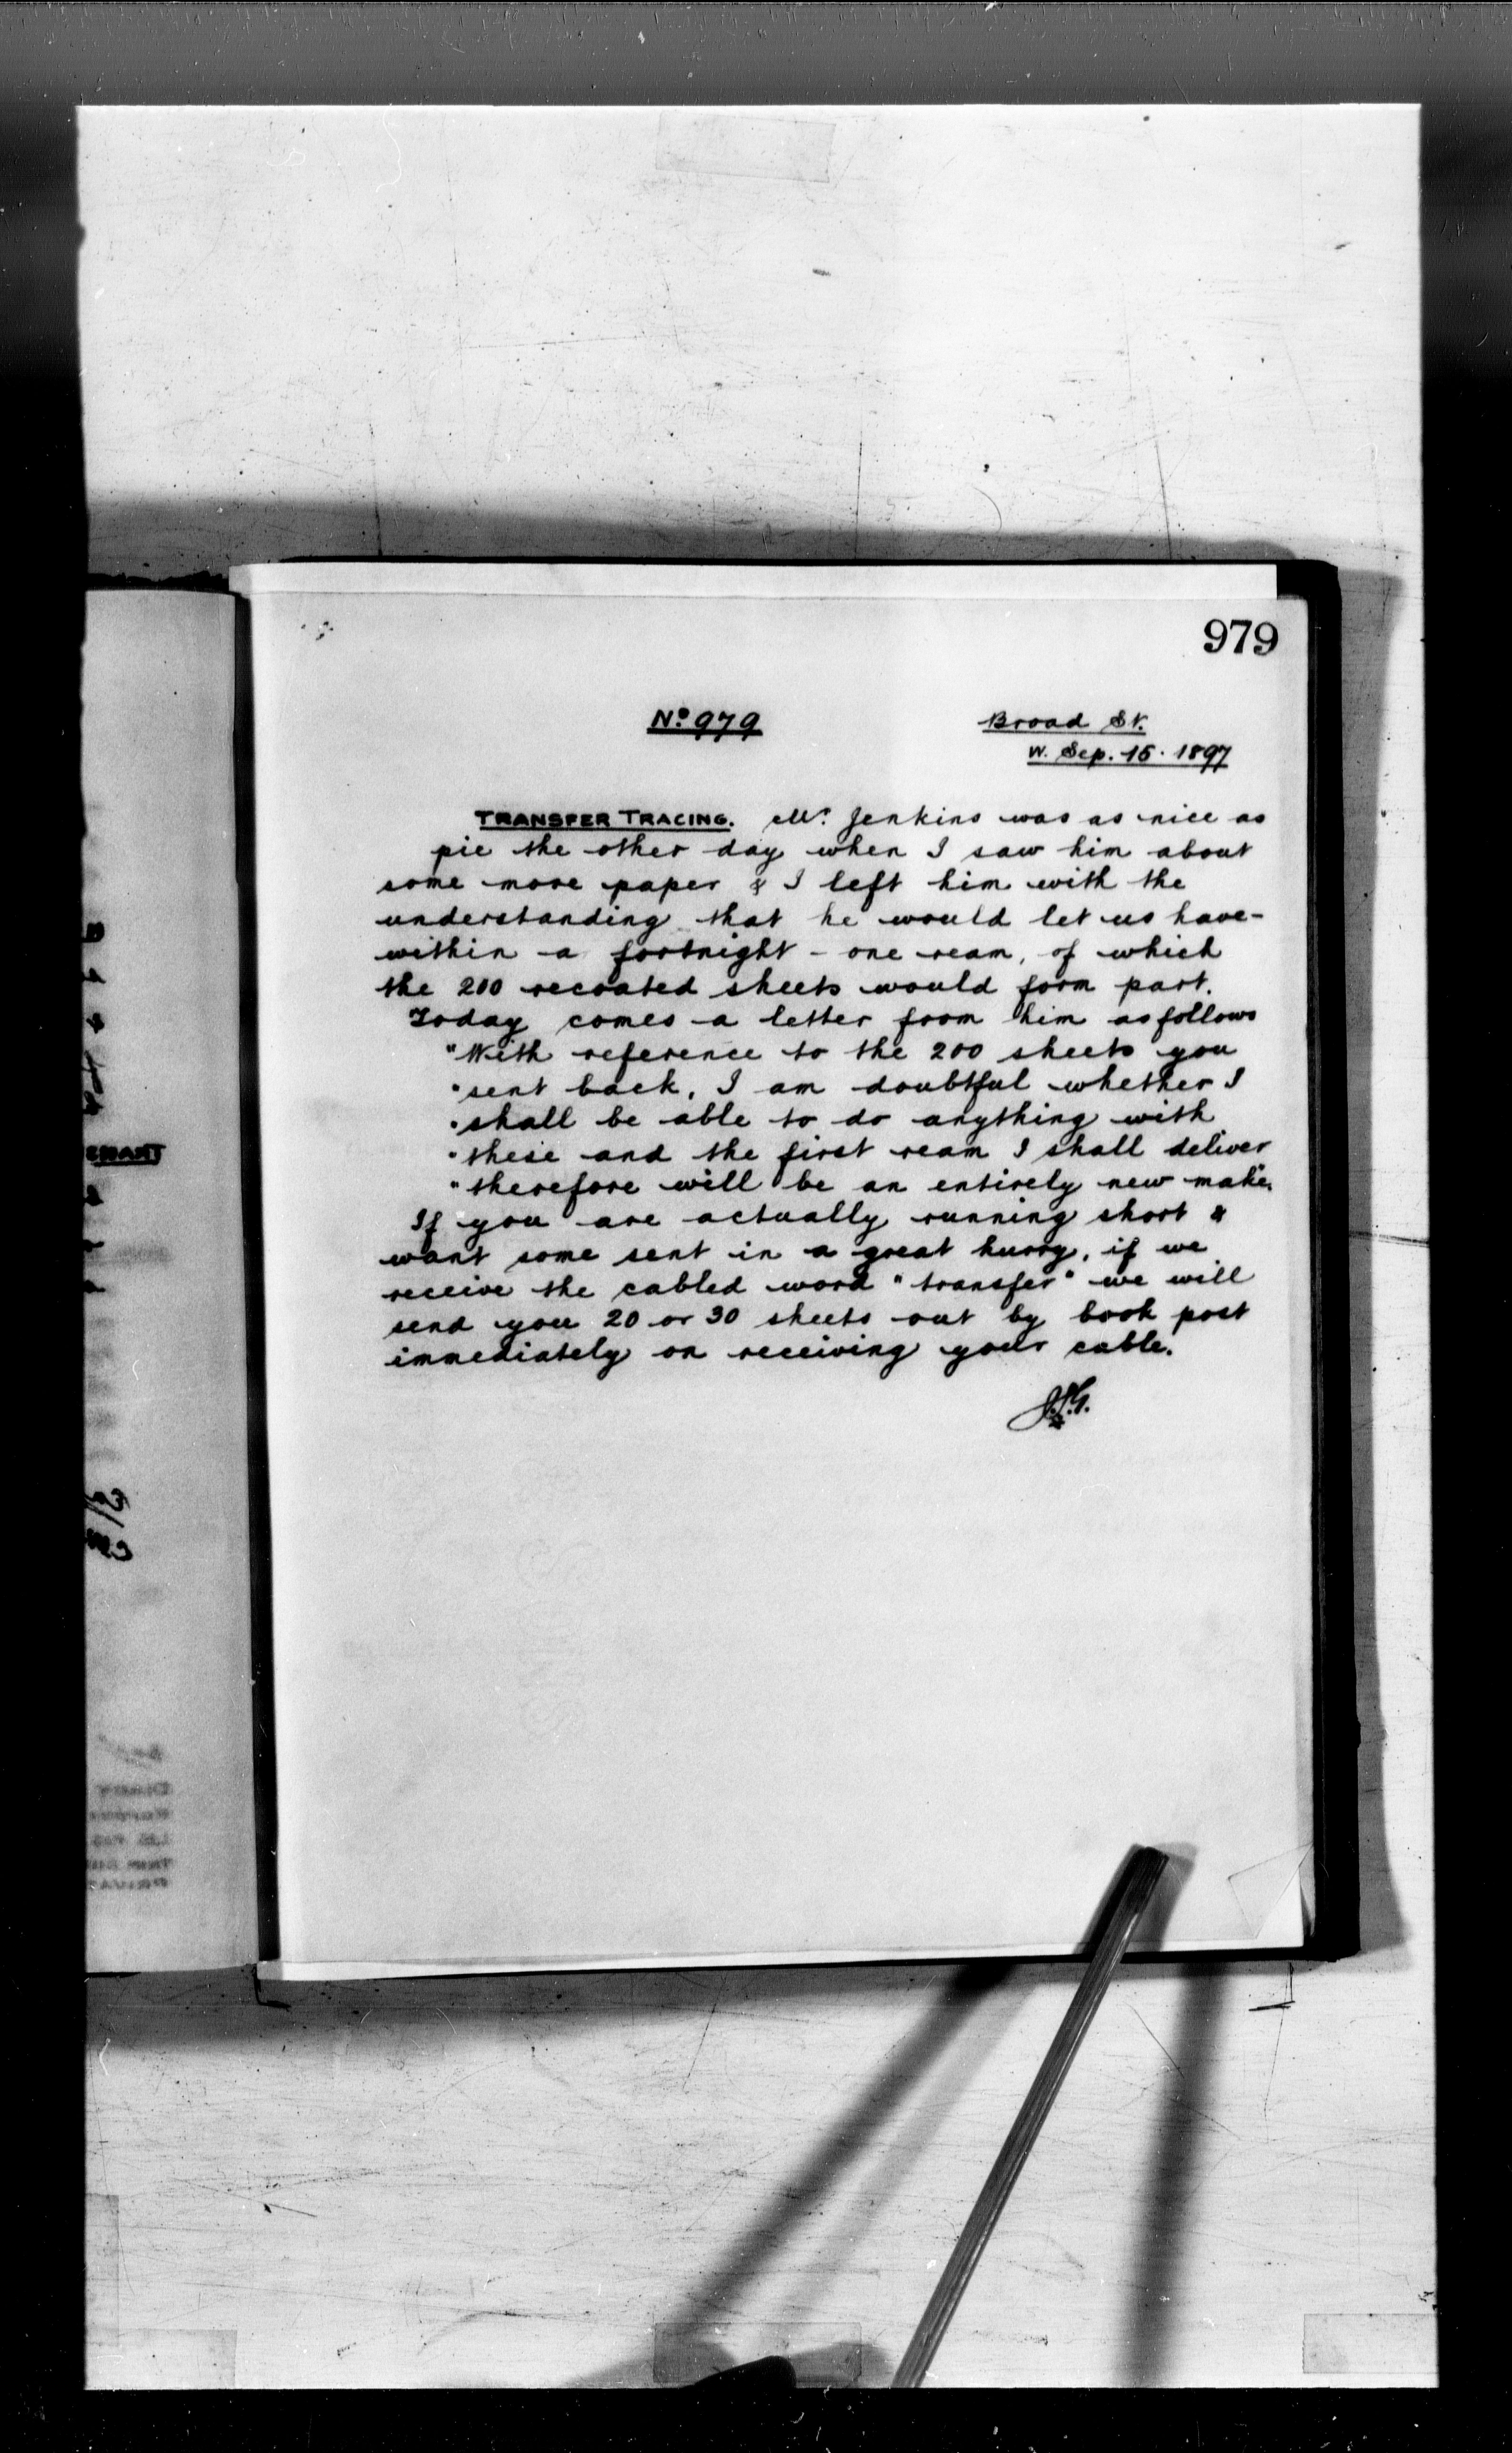 979
No. 979
Broad St.
W. Sep. 15. 1897
TRANSFER TRACING. Mr. Jenkins was as nice as
pie the other day when I saw him about
some more paper & I left him with the
understanding that he would let us have -
within a fortnight - one ream, of which
the 200 recoated sheets would form part.
Today comes a letter from him as follows
"With reference to the 200 sheets you
"sent back, I am doubtful whether I
"shall be able to do anything with
"these and the first ream I shall deliver
"therefore will be an entirely new make."
If you are actually running short &
want some sent in a great hurry, if we
receive the cabled word "transfer" we will
send you 20 or 30 sheets out by book post
immediately on receiving your cable.